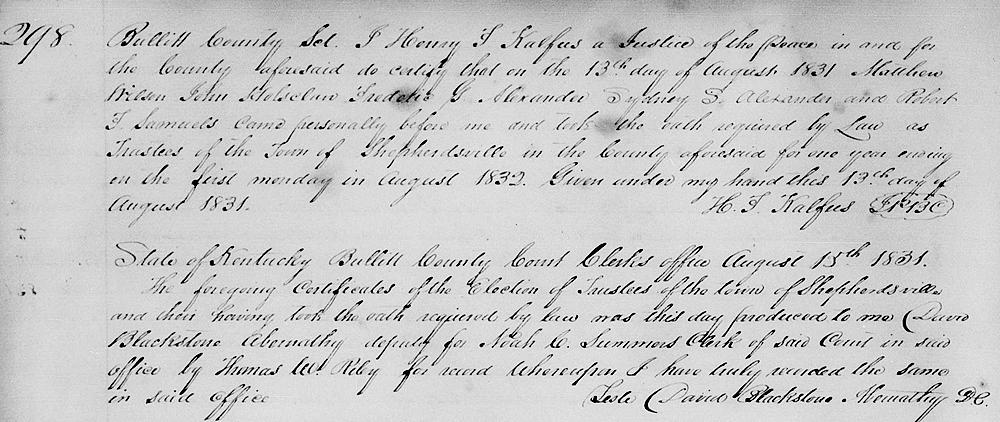 298.
Bullitt County Sct. I Henry F Kalfus a Justice of the Peace in and for
the County aforesaid do certify that on the 13th day of August 1831 Matthew
Wilson John Holsclaw Frederic G. Alexander Sydney S. Alexander and Robert
F. Samuels came personally before me and took the oath required by Law as
Trustees of the Town of Shepherdsville in the County aforesaid for one year ending
on the first monday in August 1832. Given under my hand this 13th day of
August 1831. H. F. Kalfus JPBC
State of Kentucky Bullitt County Court Clerks office August 15th 1831.
The foregoing Certificates of the Election of Trustees of the town of Shepherdsville
and their having took the oath required by law was this day produced to me (David
Blackstone Abernathy deputy for Noah C. Summers Clerk of said Court in said
office by Thomas W. Riley for record whereupon I have truly recorded the same
in said office Teste (David Blackstone Abernathy D.C.